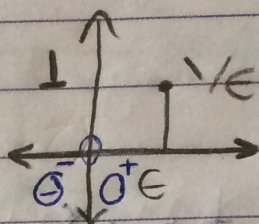 1 1/ϵ
0⁻ 0⁺ ϵ